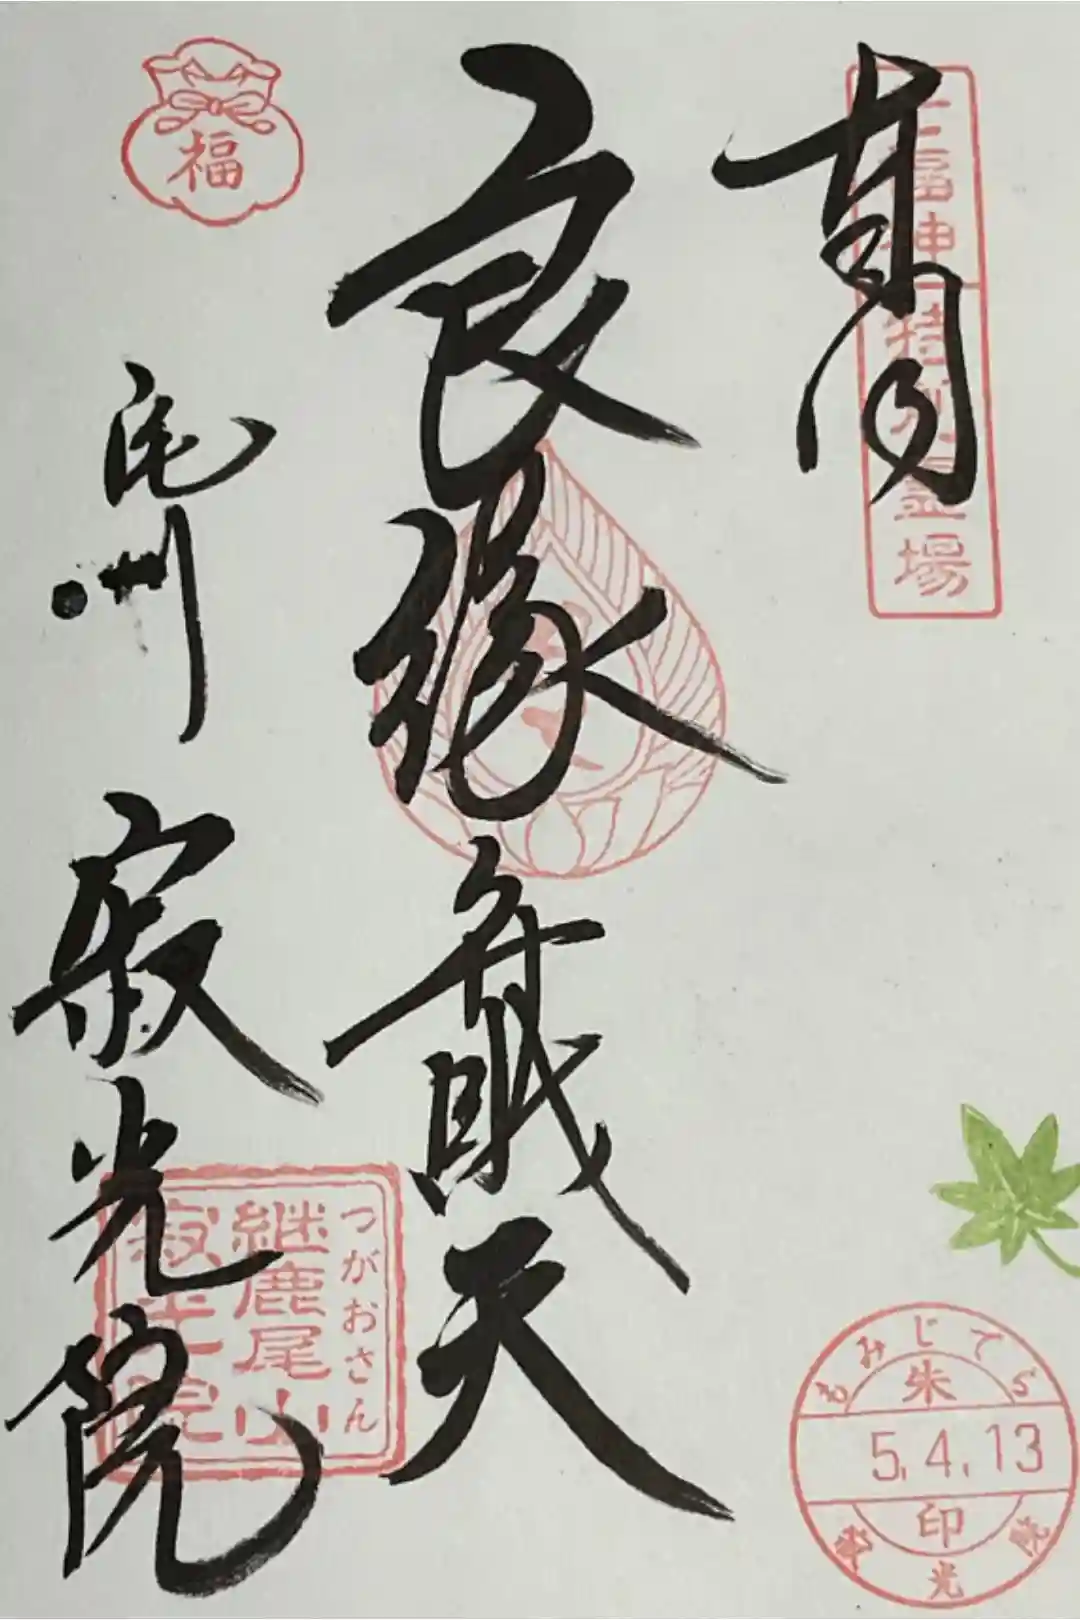 福神特別霊場
良縁弁戝天
福
尾州 寂光院
つがおさん
継鹿尾山
寂光院
もみじでら
朱
5.4.13
印
寂光院